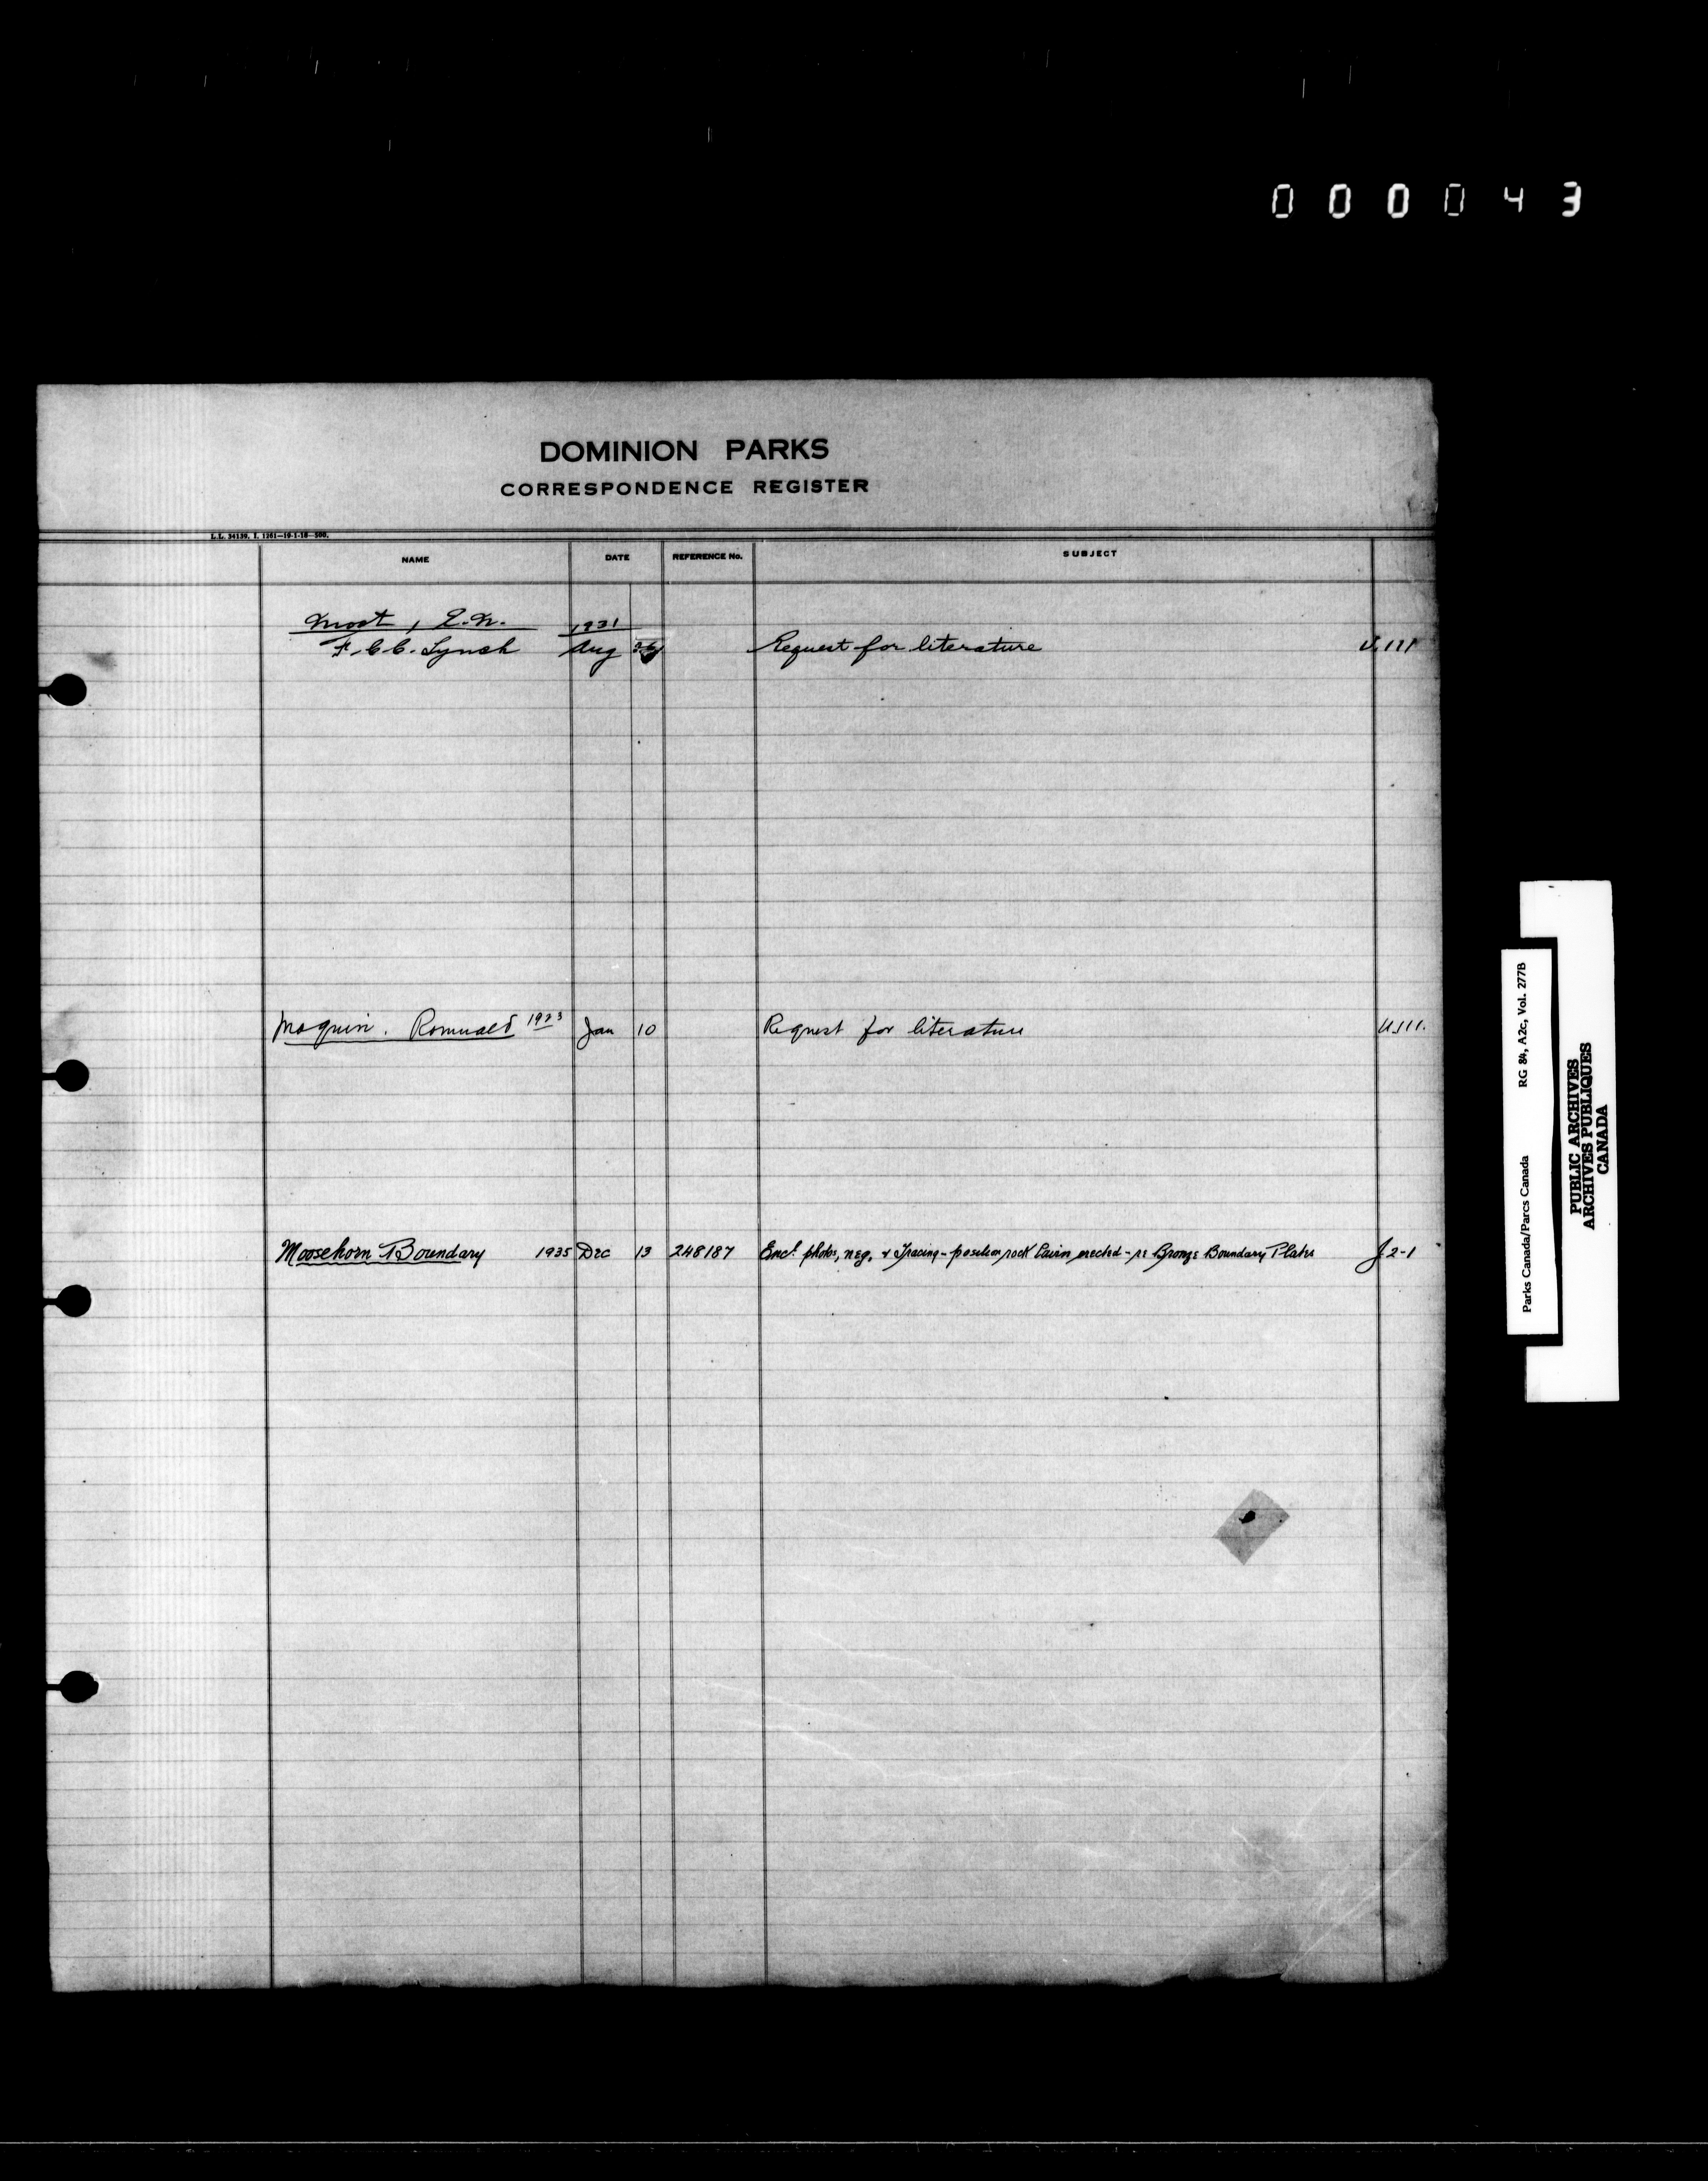 000043
DOMINION PARKS
CORRESPONDENCE REGISTER
L.L. 34139. I. 1261—19-1-18—500.
NAME DATE REFERENCE No. SUBJECT
Moat, E.N. 1931
F.C.C. Lynch Aug Request for literature U.111
Moquin. Romuald 1933 Jan 10 Request for literature U.111.
Moosehorn Boundary 1935 Dec 13 248187 Encl. photos, neg. & Tracing - position rock Cairn erected - re Bronze Boundary Plates J 2-1
Parks Canada/Parcs Canada RG 84, A2c, Vol. 277B
PUBLIC ARCHIVES
ARCHIVES PUBLIQUES
CANADA